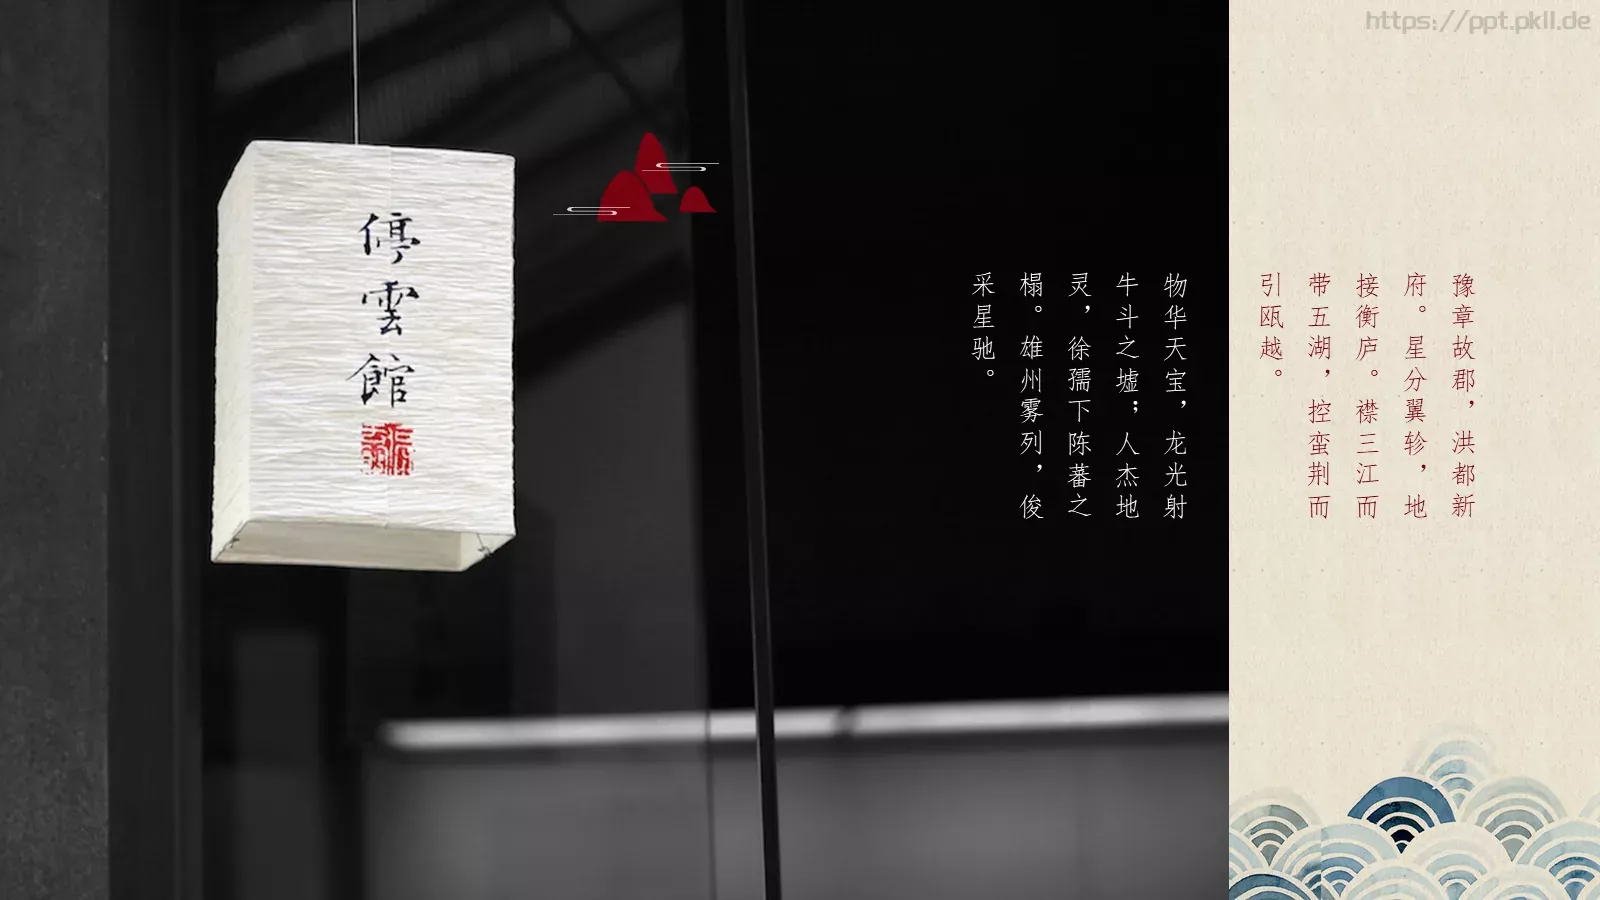 https://ppt.pkll.de
豫章故郡，洪都新
府。星分翼轸，地
接衡庐。襟三江而
带五湖，控蛮荆而
引瓯越。
物华天宝，龙光射
牛斗之墟；人杰地
灵，徐孺下陈蕃之
榻。雄州雾列，俊
采星驰。
停雲館